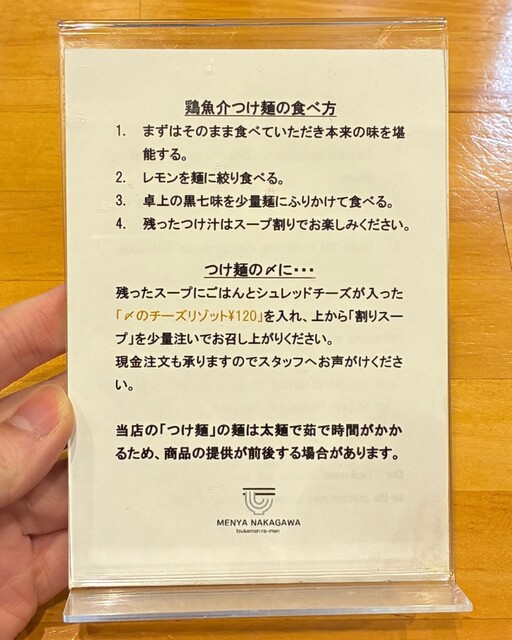 鶏魚介つけ麺の食べ方
1. まずはそのまま食べていただき本来の味を堪
能する。
2. レモンを麺に絞り食べる。
3. 卓上の黒七味を少量麺にふりかけて食べる。
4. 残ったつけ汁はスープ割りでお楽しみください。
つけ麺の〆に・・・
残ったスープにごはんとシュレッドチーズが入った
「〆のチーズリゾット¥120」を入れ、上から「割りスー
プ」を少量注いでお召し上がりください。
現金注文も承りますのでスタッフへお声がけくださ
い。
当店の「つけ麺」の麺は太麺で茹で時間がかか
るため、商品の提供が前後する場合があります。
MENYA NAKAGAWA
tsukemen ra-men